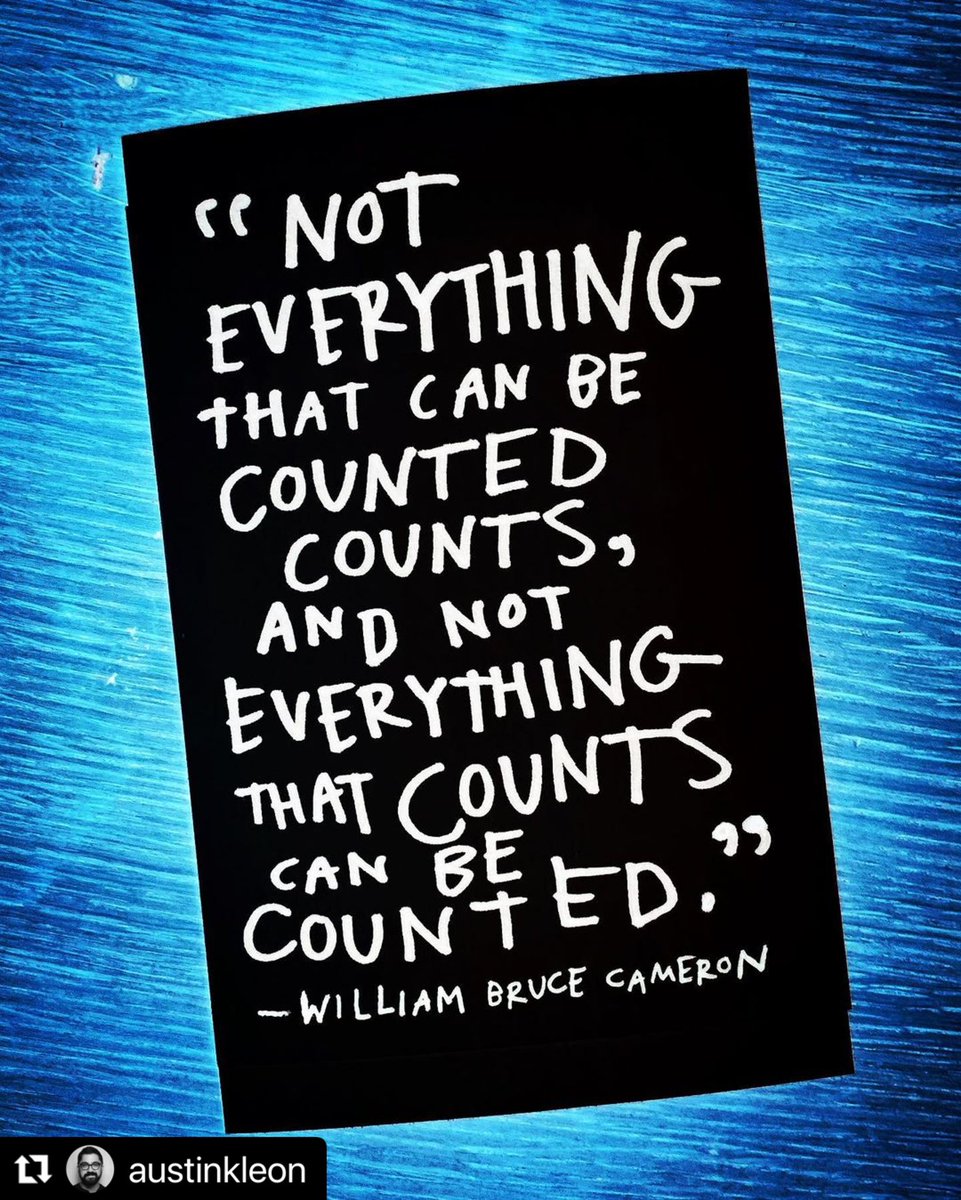 “NOT
EVERYTHING
THAT CAN BE
COUNTED
COUNTS,
AND NOT
EVERYTHING
THAT COUNTS
CAN BE
COUNTED.”
—WILLIAM BRUCE CAMERON
austinkleon